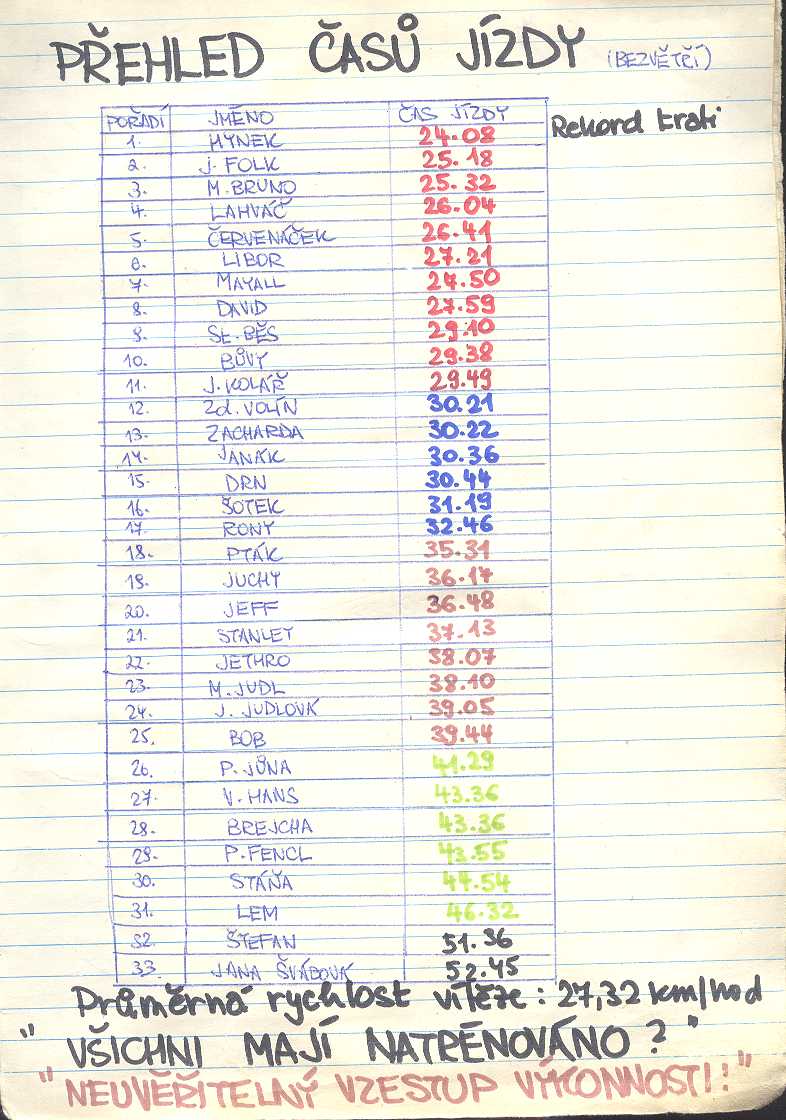 PŘEHLED ČASŮ JÍZDY (BEZVĚTŘÍ)
POŘADÍ JMÉNO ČAS JÍZDY
1. HYNEK 24.08 Rekord trati
2. J. FOLK 25.18
3. M. BRUNO 25.32
4. LAHVÁČ 26.04
5. ČERVENÁČEK 26.41
6. LIBOR 27.21
7. MAYALL 27.50
8. DAVID 27.59
9. ST. BĚS 29.10
10. BŮVY 29.38
11. J. KOLÁŘ 29.49
12. Zd. VOLÍN 30.21
13. ZACHARDA 30.22
14. JANÁK 30.36
15. DRN 30.44
16. ŠOTEK 31.19
17. RONY 32.46
18. PTÁK 35.31
19. JUCHY 36.17
20. JEFF 36.48
21. STANLEY 37.13
22. JETHRO 38.07
23. M. JUDL 38.10
24. J. JUDLOVÁ 39.05
25. BOB 39.44
26. P. JŮNA 41.29
27. V. HANS 43.36
28. BREJCHA 43.36
29. P. FENCL 43.55
30. STÁŇA 44.54
31. LEM 46.32
32. ŠTEFAN 51.36
33. JANA ŠVÁBOVÁ 52.45
Průměrná rychlost vítěze : 27,32 km/hod
" VŠICHNI MAJÍ NATRÉNOVÁNO ? "
" NEUVĚŘITELNÝ VZESTUP VÝKONNOSTI!! "